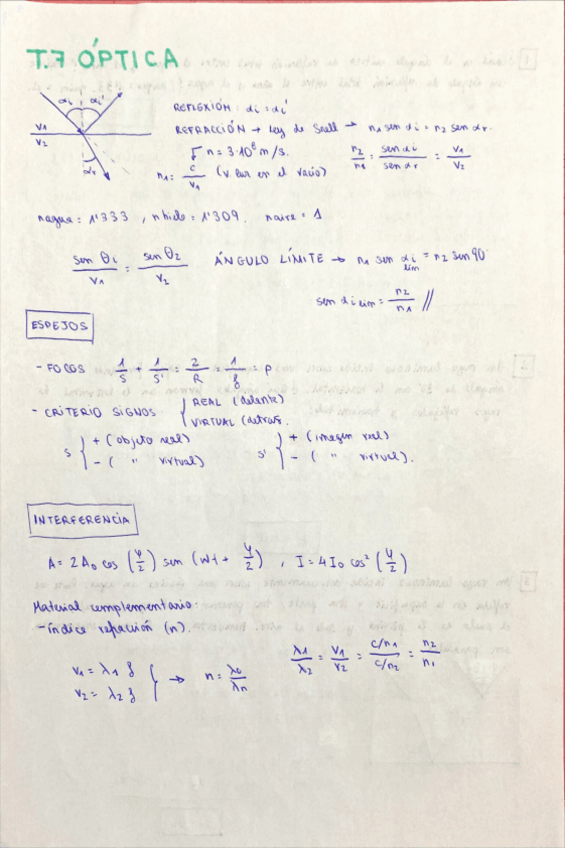 T.7 ÓPTICA
αi αi'
V1
V2
αr
REFLEXIÓN: αi = αi'
REFRACCIÓN → Ley de Snell → n1 sen αi = n2 sen αr.
n = 3·10⁸ m/s.
n1 = c/v1 (v. luz en el vacío)
n2/n1 = sen αi/sen αr = v1/v2
nagua = 1'333 , nhielo = 1'309. naire = 1
sen θi/v1 = sen θ2/v2
ÁNGULO LÍMITE → n1 sen αi lim = n2 sen 90º
sen αi lim = n2/n1 //
ESPEJOS
- FOCOS 1/s + 1/s' = 2/R = 1/f = P
- CRITERIO SIGNOS { REAL (delante)
VIRTUAL (detrás.
s { + (objeto real)
- ( " virtual)
s' { + (imagen real)
- ( " virtual).
INTERFERENCIA
A = 2A0 cos (φ/2) sen (wt + φ/2) , I = 4I0 cos² (φ/2)
Material complementario:
- índice refración (n).
v1 = λ1 f
v2 = λ2 f
} → n = λ0/λn
λ1/λ2 = v1/v2 = c/n1 / c/n2 = n2/n1